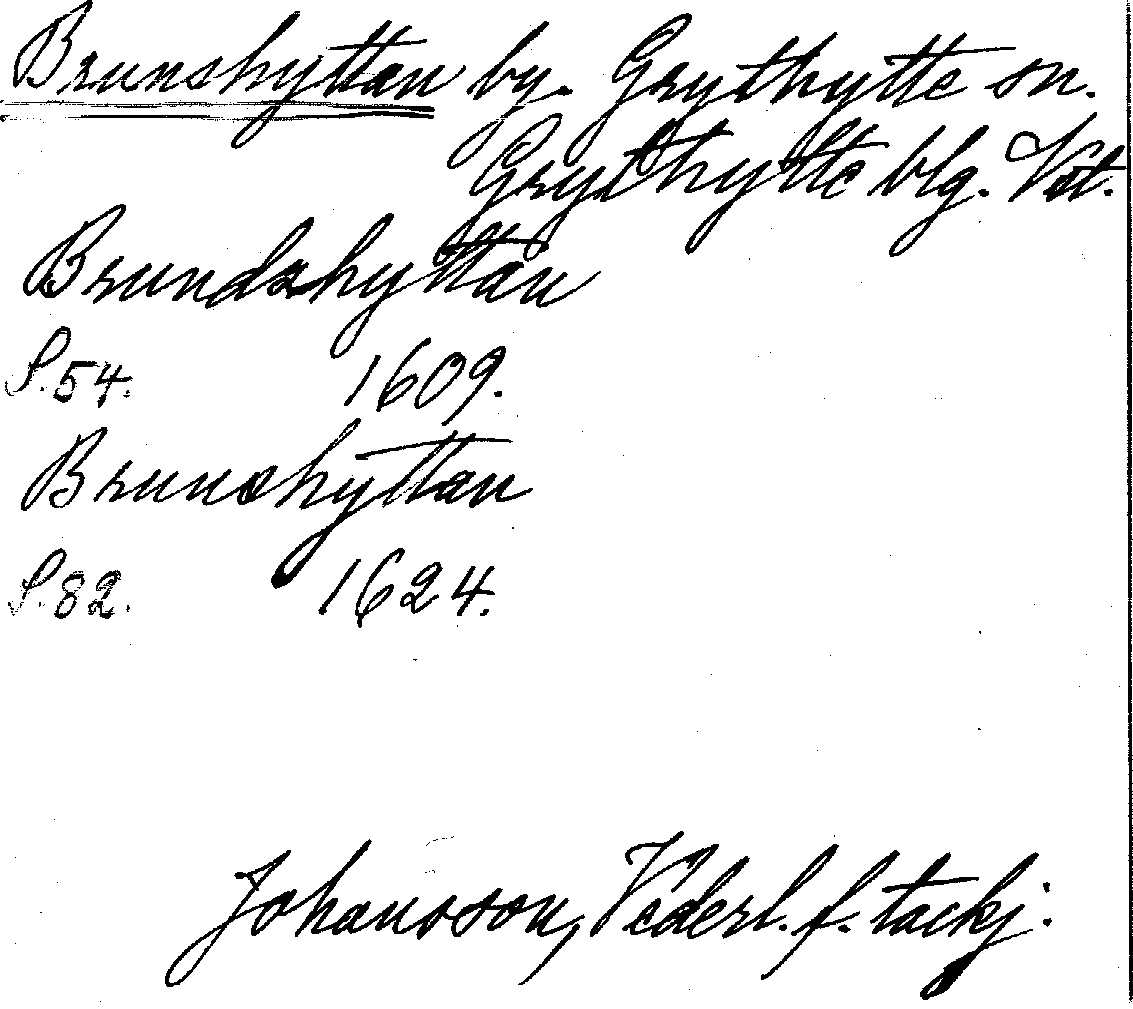 Brunshyttan by. Grythytte sn.
Grythytte blg. Vst.
Brundzhyttan
S. 54. 1609.
Brunshyttan
S. 82. 1624.
Johansson, Vederl. f. tackj.